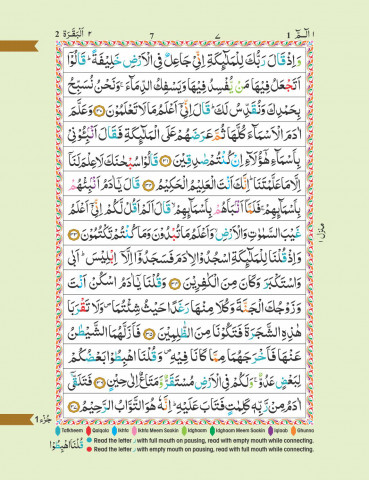 2 اَلْبَقَرَة ٢
7 ٧
1 الٓمّٓ ١
وَاِذْ قَالَ رَبُّكَ لِلْمَلٰٓئِكَةِ اِنِّىْ جَاعِلٌ فِى الْاَرْضِ خَلِيْفَةً ؕ قَالُوْٓا
اَتَجْعَلُ فِيْهَا مَنْ يُّفْسِدُ فِيْهَا وَيَسْفِكُ الدِّمَآءَ ۚ وَنَحْنُ نُسَبِّحُ
بِحَمْدِكَ وَنُقَدِّسُ لَكَ ؕ قَالَ اِنِّىْٓ اَعْلَمُ مَا لَا تَعْلَمُوْنَ ﴿۳۰﴾ وَعَلَّمَ
اٰدَمَ الْاَسْمَآءَ كُلَّهَا ثُمَّ عَرَضَهُمْ عَلَى الْمَلٰٓئِكَةِ فَقَالَ اَنْۢبِـُٔوْنِىْ
بِاَسْمَآءِ هٰٓؤُلَآءِ اِنْ كُنْتُمْ صٰدِقِيْنَ ﴿۳۱﴾ قَالُوْا سُبْحٰنَكَ لَا عِلْمَ لَنَآ
اِلَّا مَا عَلَّمْتَنَا ؕ اِنَّكَ اَنْتَ الْعَلِيْمُ الْحَكِيْمُ ﴿۳۲﴾ قَالَ يٰٓاٰدَمُ اَنْۢبِئْهُمْ
بِاَسْمَآئِهِمْ ۚ فَلَمَّآ اَنْۢبَاَهُمْ بِاَسْمَآئِهِمْ ۙ قَالَ اَلَمْ اَقُلْ لَّكُمْ اِنِّىْٓ اَعْلَمُ
غَيْبَ السَّمٰوٰتِ وَالْاَرْضِ ۙ وَاَعْلَمُ مَا تُبْدُوْنَ وَمَا كُنْتُمْ تَكْتُمُوْنَ ﴿۳۳﴾
وَاِذْ قُلْنَا لِلْمَلٰٓئِكَةِ اسْجُدُوْا لِاٰدَمَ فَسَجَدُوْٓا اِلَّآ اِبْلِيْسَ ؕ اَبٰى
وَاسْتَكْبَرَ ۗ وَكَانَ مِنَ الْكٰفِرِيْنَ ﴿۳۴﴾ وَقُلْنَا يٰٓاٰدَمُ اسْكُنْ اَنْتَ
وَزَوْجُكَ الْجَنَّةَ وَكُلَا مِنْهَا رَغَدًا حَيْثُ شِئْتُمَا ۪ وَلَا تَقْرَبَا
هٰذِهِ الشَّجَرَةَ فَتَكُوْنَا مِنَ الظّٰلِمِيْنَ ﴿۳۵﴾ فَاَزَلَّهُمَا الشَّيْطٰنُ
عَنْهَا فَاَخْرَجَهُمَا مِمَّا كَانَا فِيْهِ ۪ وَقُلْنَا اهْبِطُوْا بَعْضُكُمْ
لِبَعْضٍ عَدُوٌّ ۚ وَلَكُمْ فِى الْاَرْضِ مُسْتَقَرٌّ وَّمَتَاعٌ اِلٰى حِيْنٍ ﴿۳۶﴾ فَتَلَقّٰٓى
اٰدَمُ مِنْ رَّبِّهٖ كَلِمٰتٍ فَتَابَ عَلَيْهِ ؕ اِنَّهٗ هُوَ التَّوَّابُ الرَّحِيْمُ ﴿۳۷﴾
منزل ١
1 جُزْء ١
Tafkheem Qalqala Ikhfa Ikhfa Meem Saakin Idghaam Idghaam Meem Saakin Iqlaab Ghunna
قُلْنَا اهْبِطُوْا
Read the letter ر with full mouth on pausing, read with empty mouth while connecting.
Read the letter ر with empty mouth on pausing, read with full mouth while connecting.